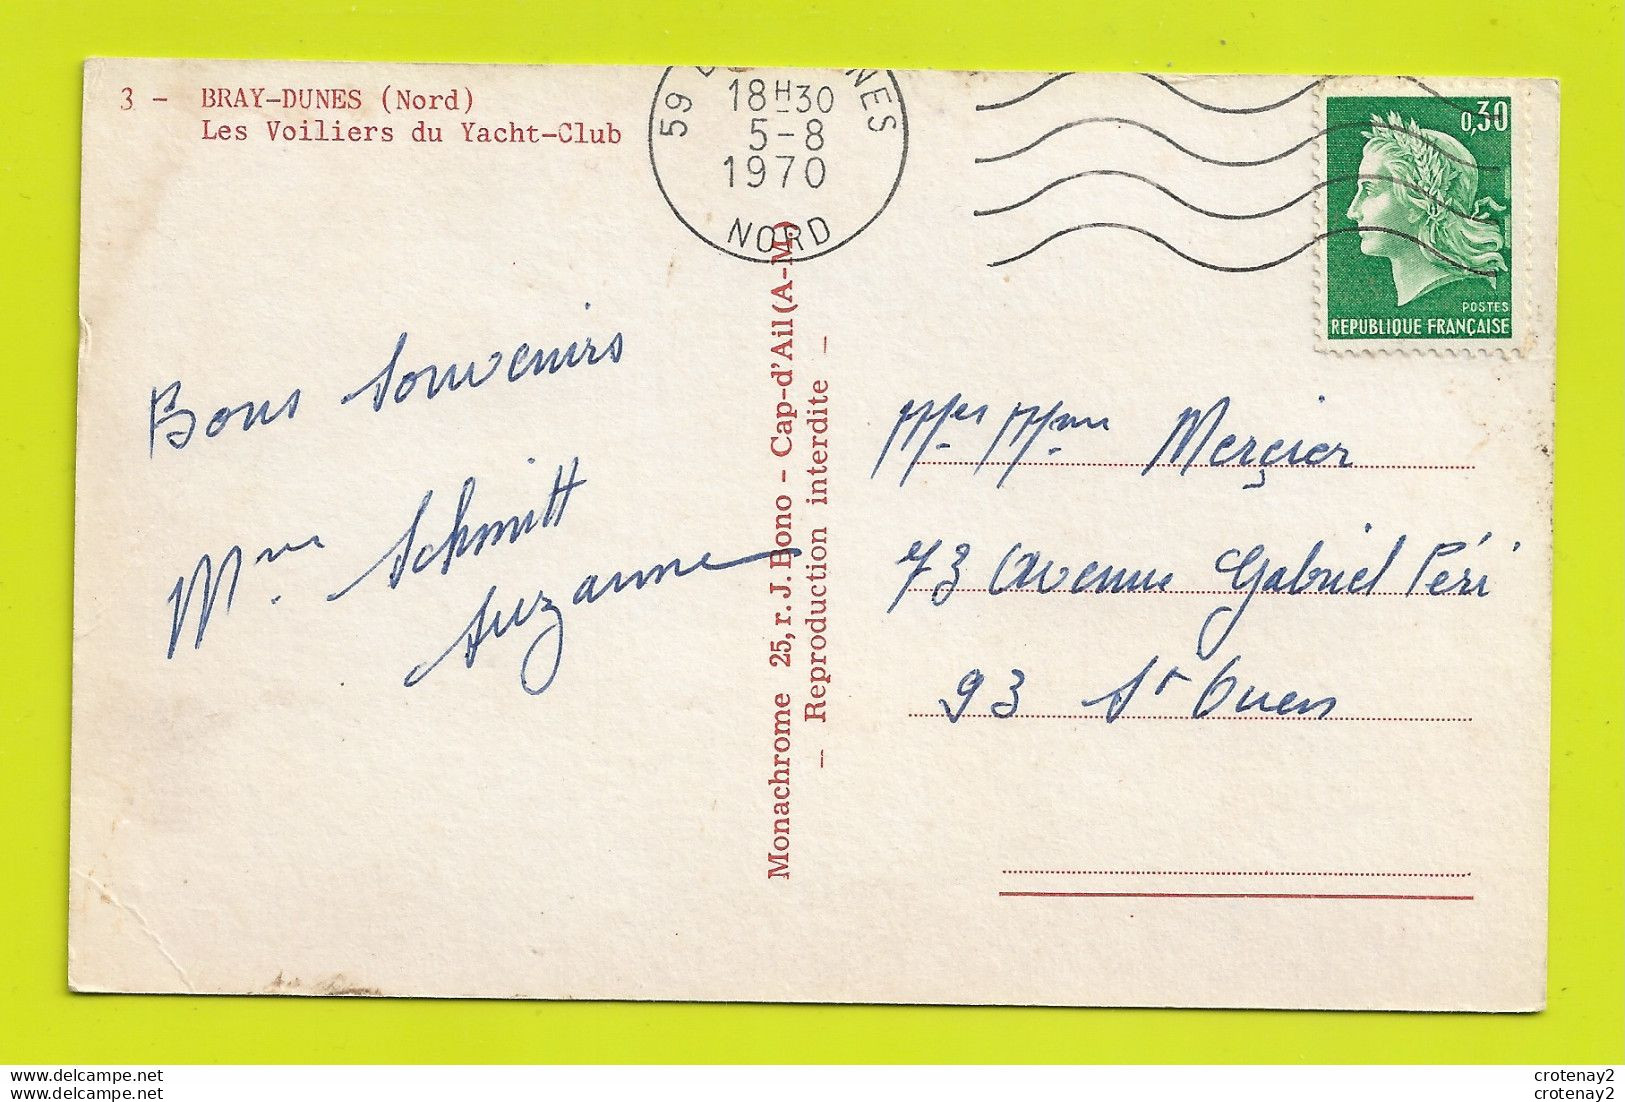 3 - BRAY-DUNES (Nord)
Les Voiliers du Yacht-Club
59 NES
18H30
5-8
1970
NORD
0,30
POSTES
REPUBLIQUE FRANÇAISE
Bons Souvenirs
Mme. Schmitt
Suzanne
Monachrome 25, r. J. Bono - Cap-d'Ail (A-M)
- Reproduction interdite -
Mme Merçier
73 Avenue Gabriel Péri
93 St Ouen
crotenay2
crotenay2
delcampe.net
delcampe.net